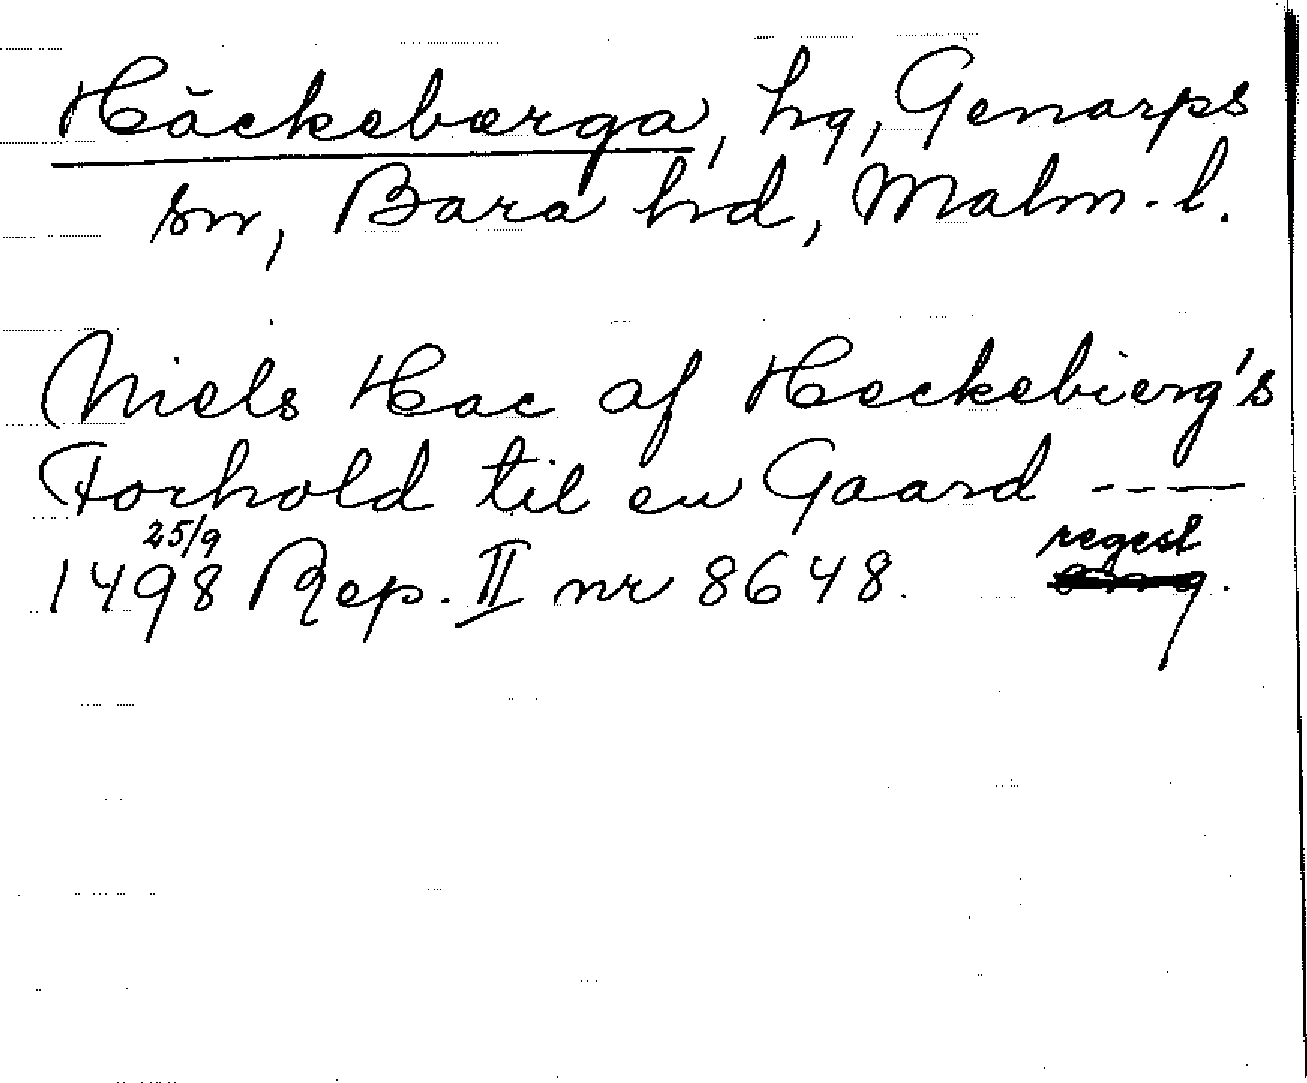 Häckeberga, hg, Genarps
sn, Bara hd, Malm.l.
Niels Hac af Heckebierg's
Forhold til en Gaard ----
25/9 regest
1498 Rep. II nr 8648.